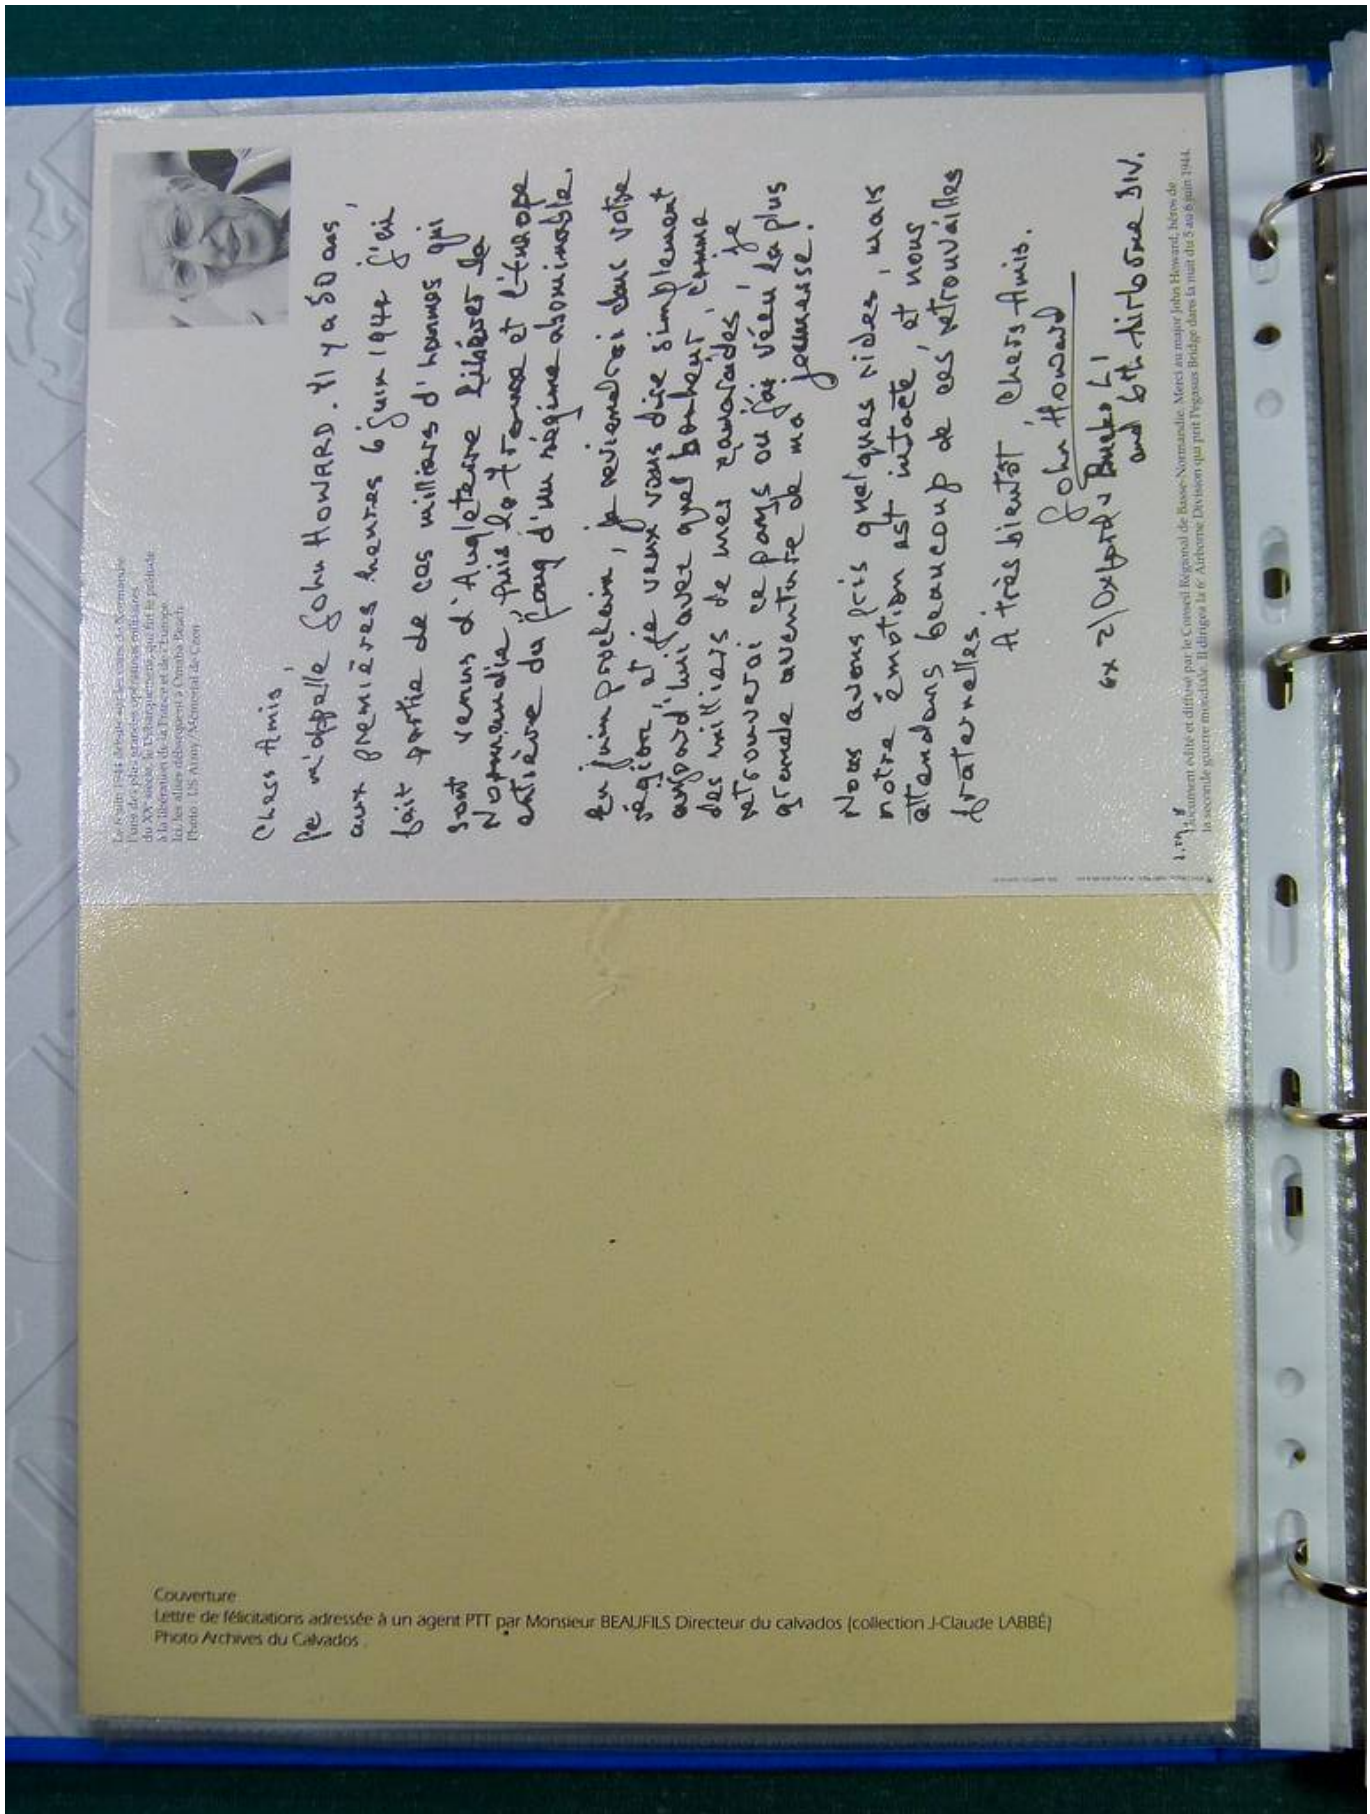 Le 6 juin 1944 débute sur les côtes de Normandie
l'une des plus grandes opérations militaires
du XXe siècle: le Débarquement, qui fut le prélude
à la libération de la France et de l'Europe.
Ici, les alliés débarquent à Omaha Beach.
Photo US Army/Mémorial de Caen
Chers Amis,
Je m'appelle John HOWARD. Il y a 50 ans,
aux premières heures 6 juin 1944 j'ai
fait partie de ces milliers d'hommes qui
sont venus d'Angleterre libérer la
Normandie, puis la France et l'Europe
entière du joug d'un régime abominable.
En juin prochain, je reviendrai dans votre
région, et je veux vous dire simplement
aujourd'hui avec quel bonheur, comme
des milliers de mes camarades, je
retrouverai ce pays où j'ai vécu la plus
grande aventure de ma jeunesse.
Nous avons pris quelques rides, mais
notre émotion est intacte, et nous
attendons beaucoup de ces retrouvailles
fraternelles.
A très bientôt, Chers Amis.
John Howard
ex 2/Oxford & Bucks L I
and 6th Airborne DIV.
Document édité et diffusé par le Conseil Régional de Basse-Normandie. Merci au major John Howard, héros de
la seconde guerre mondiale. Il dirigea la 6e Airborne Division qui prit Pegasus Bridge dans la nuit du 5 au 6 juin 1944.
Couverture
Lettre de félicitations adressée à un agent PTT par Monsieur BEAUFILS Directeur du calvados (collection J-Claude LABBÉ)
Photo Archives du Calvados .